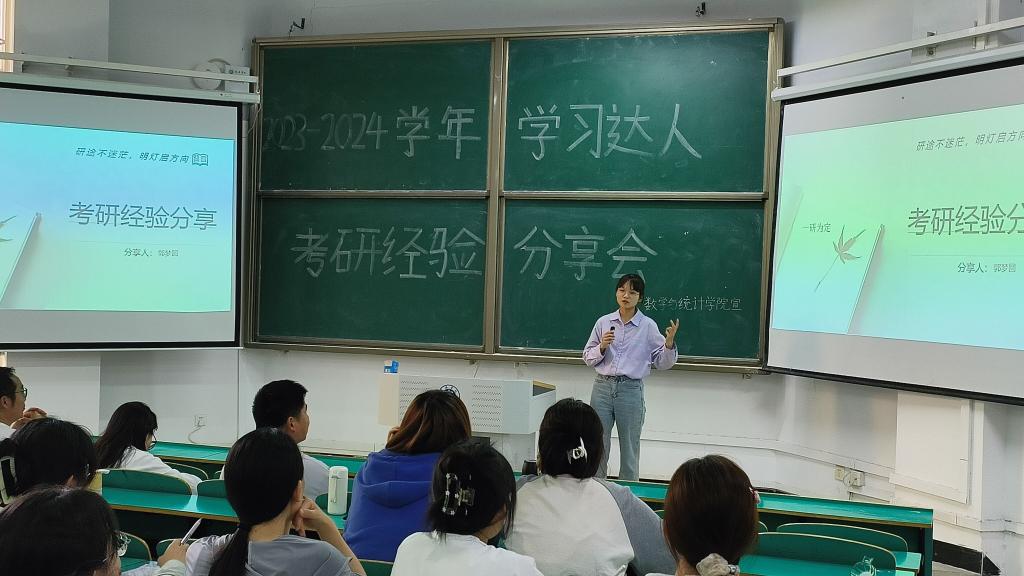 研途不迷茫，明灯启方向
考研经验分享
分享人：郭梦圆
2023-2024学年 学习达人
考研经验分享会
数学与统计学院宣
研途不迷茫，明灯启方
一研为定
考研经验分
分享人：郭梦圆